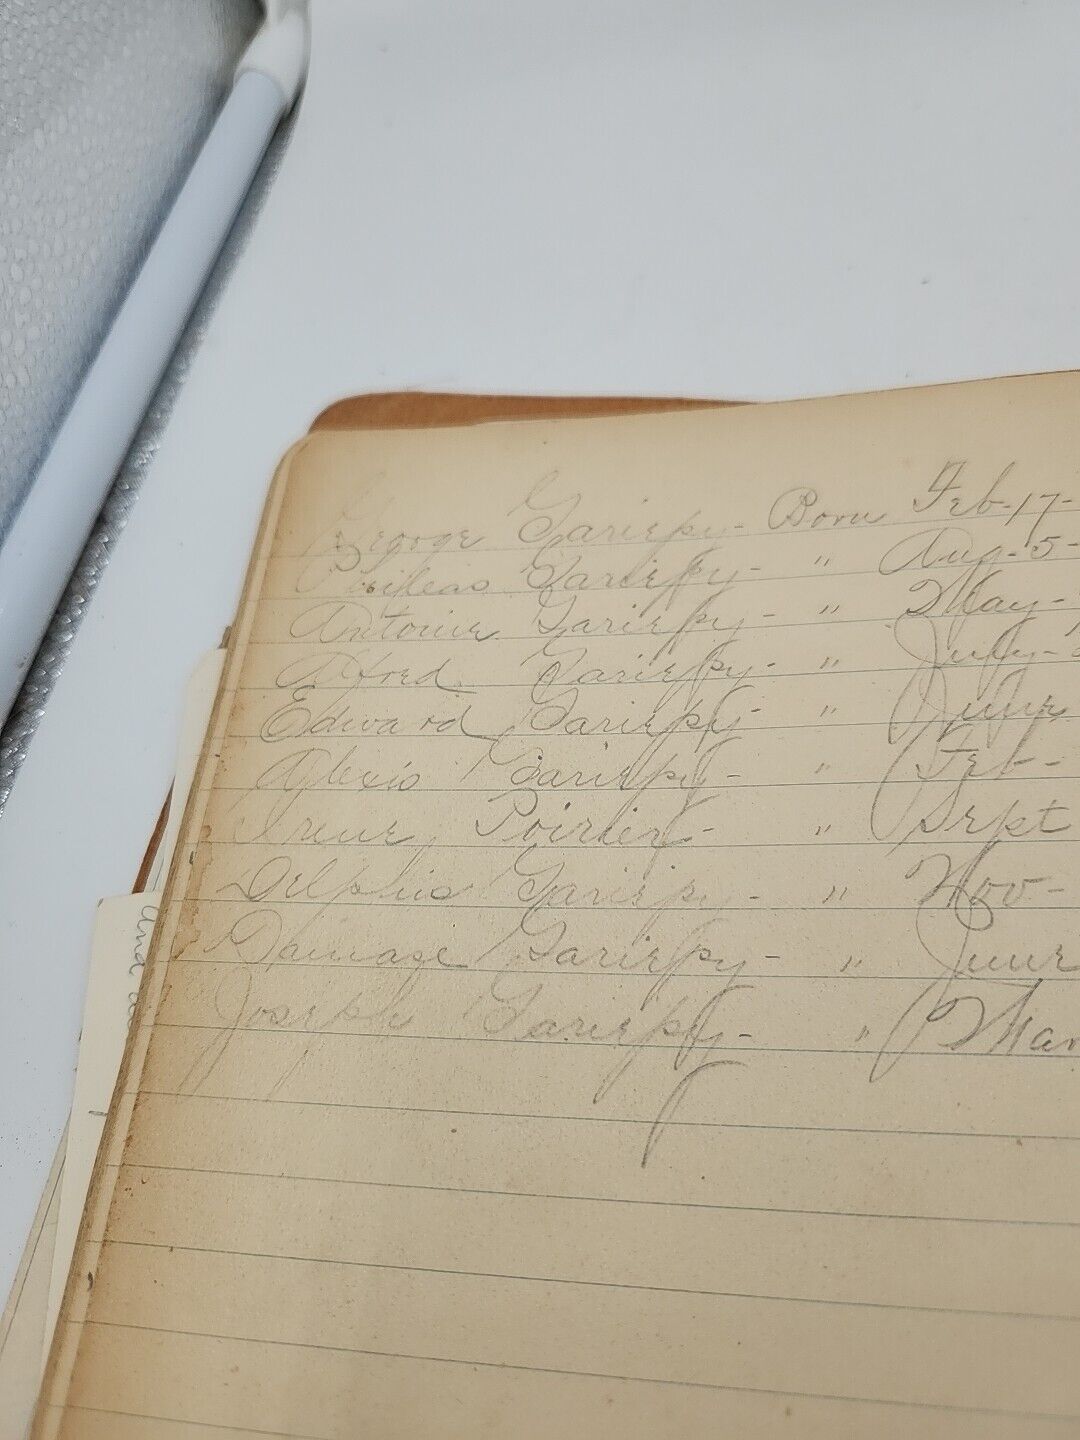 George Gariepy - Born Feb - 17 -
Phileas Gariepy - " Aug - 5 -
Antoine Gariepy - " May -
Alfred Gariepy - " July -
Edward Gariepy - " June
Alexis Gariepy - " Feb -
Irene Poirier - " Sept
Delphis Gariepy - " Nov -
Damase Gariepy - " June
Joseph Gariepy - " Mar
and